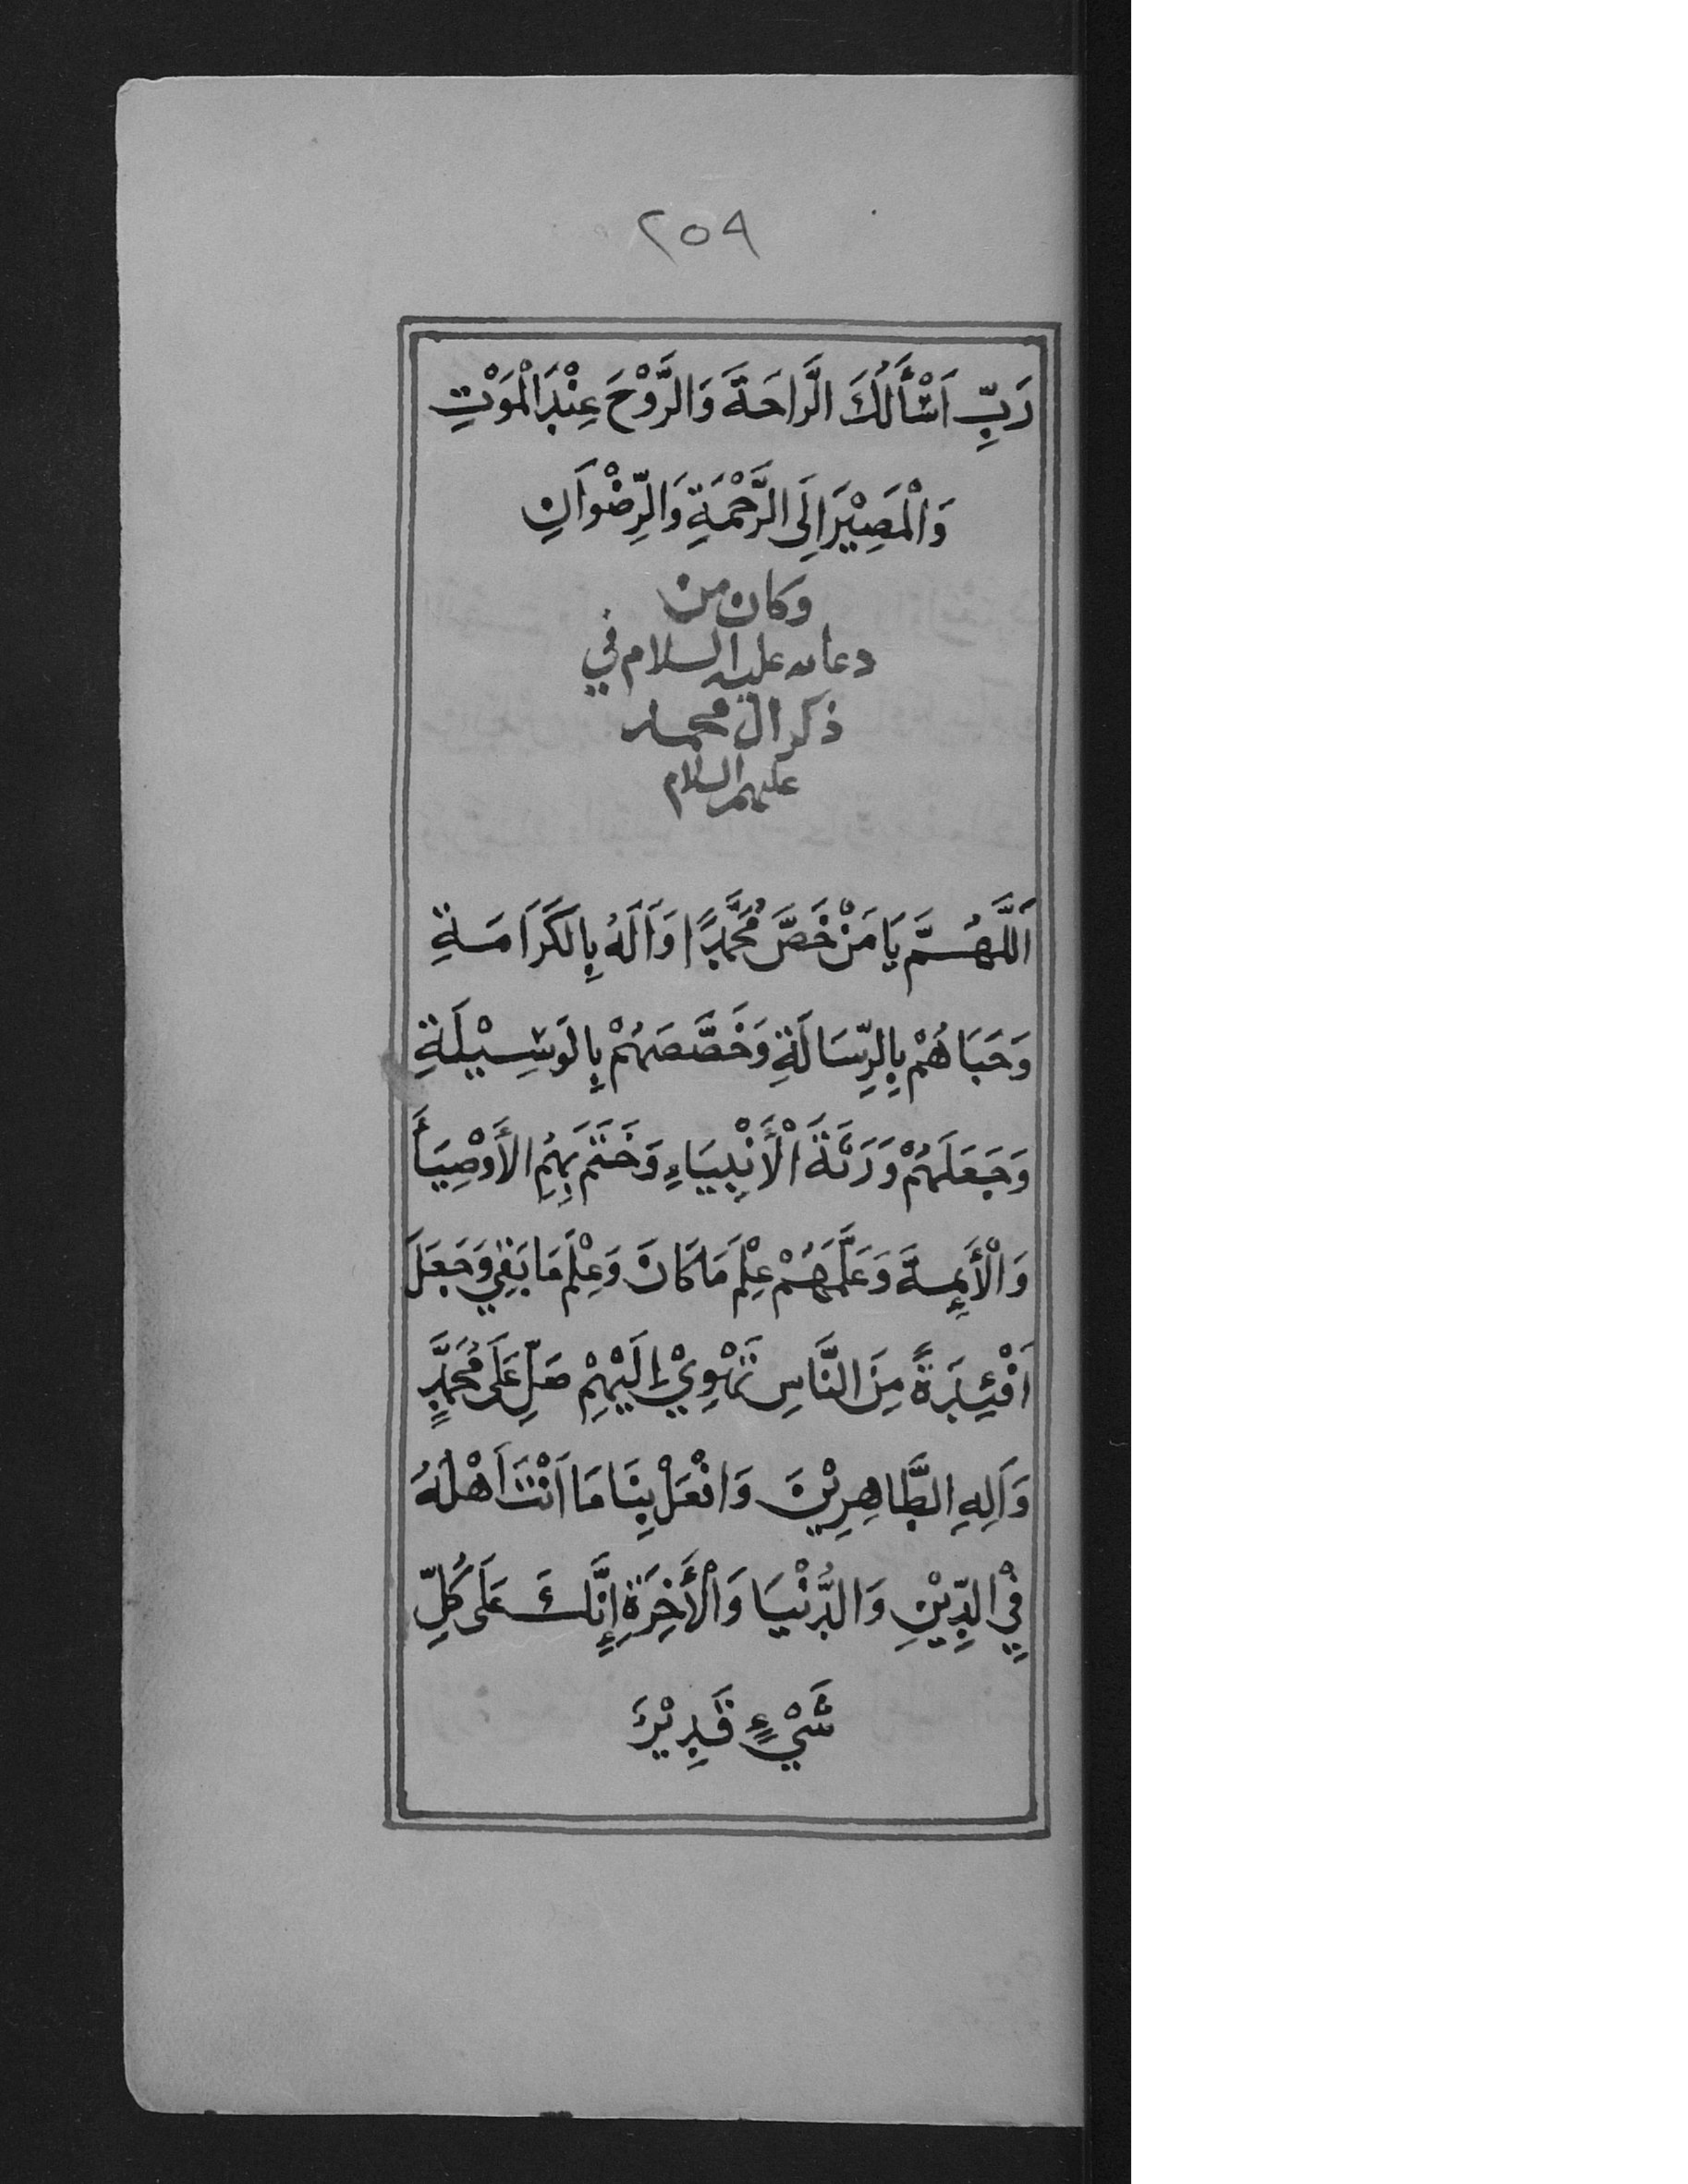 ٢٥٩
رَبِّ اَسْأَلُكَ الرَّاحَةَ وَالرَّوْحَ عِنْدَ الْمَوْتِ
وَالْمَصِيْرَ اِلَى الرَّحْمَةِ وَالرِّضْوَانِ
وكان من
دعائه عليه السلام في
ذكر ال محمد
عليهم السلام
اَللَّهُمَّ يَا مَنْ خَصَّ مُحَمَّدًا وَاَلَهُ بِالكَرَامَةِ
وَحَبَاهُمْ بِالرِّسَالَةِ وَخَصَّصَهُمْ بِالوَسِيْلَةِ
وَجَعَلَهُمْ وَرَثَةَ الْأَنْبِيَاءِ وَخَتَمَ بِهِمُ الأَوْصِيَأَ
وَالْأَئِمَةَ وَعَلَّمَهُمْ عِلْمَ مَا كَانَ وَعِلْمَ مَا بَقِيَ وَجَعَلَ
اَفْئِدَةً مِنَ النَّاسِ تَهْوِيْ إِلَيْهِمْ صَلِّ عَلَى مُحَمَّدٍ
وَاَلِهِ الطَّاهِرِيْنَ وَافْعَلْ بِنَا مَا اَنْتَ اَهْلُهُ
فِي الدِّيْنِ وَالدُّنْيَا وَالْأَخِرَةِ إِنَّكَ عَلَى كُلِّ
شَيْءٍ قَدِيْرٌ